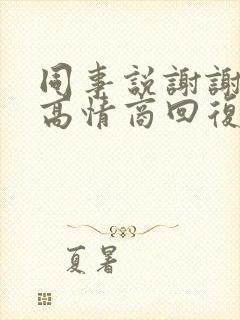 同事説謝謝
高情商回復
夏暑